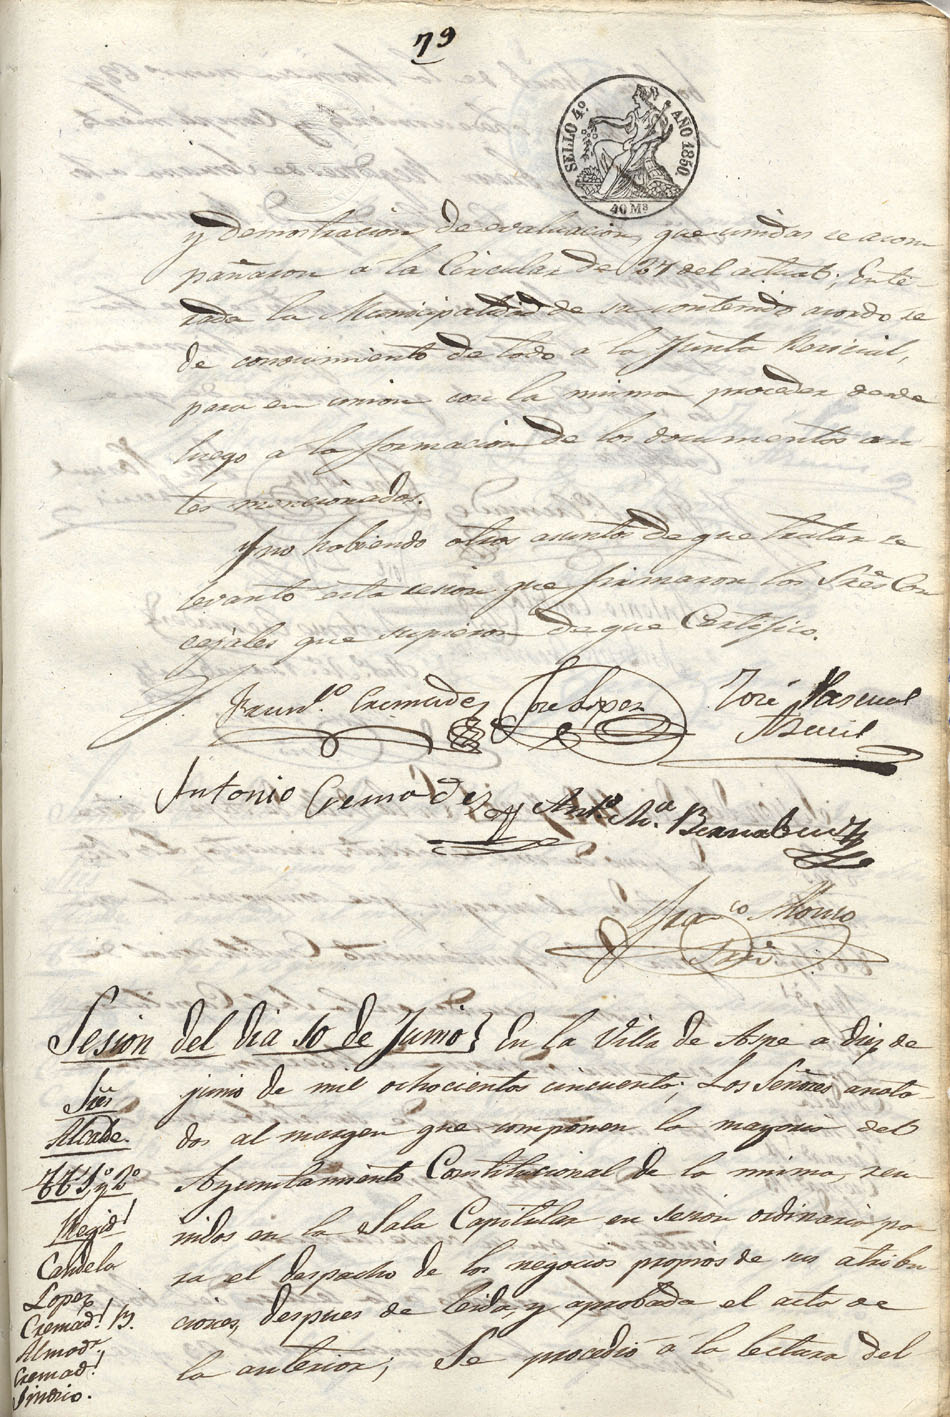 79
SELLO 4º AÑO 1850.
40 Ms
y demostracion de evaluacion, que unidas se acom
pañaron á la Circular de 27 del actual; Ente-
rada la Municipalidad de su contenido acordo se
de conocimiento de todo á la Junta Pericial,
para en union con la misma proceder desde
luego á la formacion de los documentos an-
tes mencionados.
Y no habiendo otros asuntos de que tratar se
levantó esta sesion que firmaron los Sres Con
cejales que supieron de que Certifico.
Franco. Cremades Jose Lopez José Pascual
Antonio Cremades Anto. Ma. Bernabeu
Franco Alonso
Srio.
Sesion del dia 10 de Junio} En la Villa de Aspe a diez de
junio de mil ochocientos cincuenta; Los Señores anota-
dos al margen que componen la mayoria del
Ayuntamiento Constitucional de la misma, reu-
nidos en la Sala Capitular en sesion ordinaria pa-
ra el despacho de los negocios propios de sus atribu
ciones, despues de leida, y aprobada el acta de
la anterior; Se procedió á la lectura del
Sres
Alcalde
TT 1º y 2º
Regid!
Candela
Lopez
Cremad! B.
Almodr
Cremad!
Sindico.